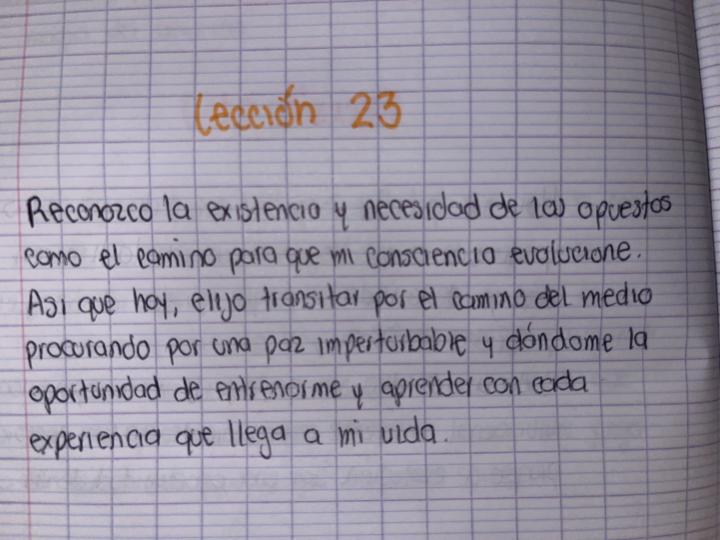 Lección 23
Reconozco la existencia y necesidad de las opuestos
como el camino para que mi consciencia evolucione.
Asi que hoy, elijo transitar por el camino del medio
procurando por una paz imperturbable y dándome la
oportunidad de entrenarme y aprender con cada
experiencia que llega a mi vida.